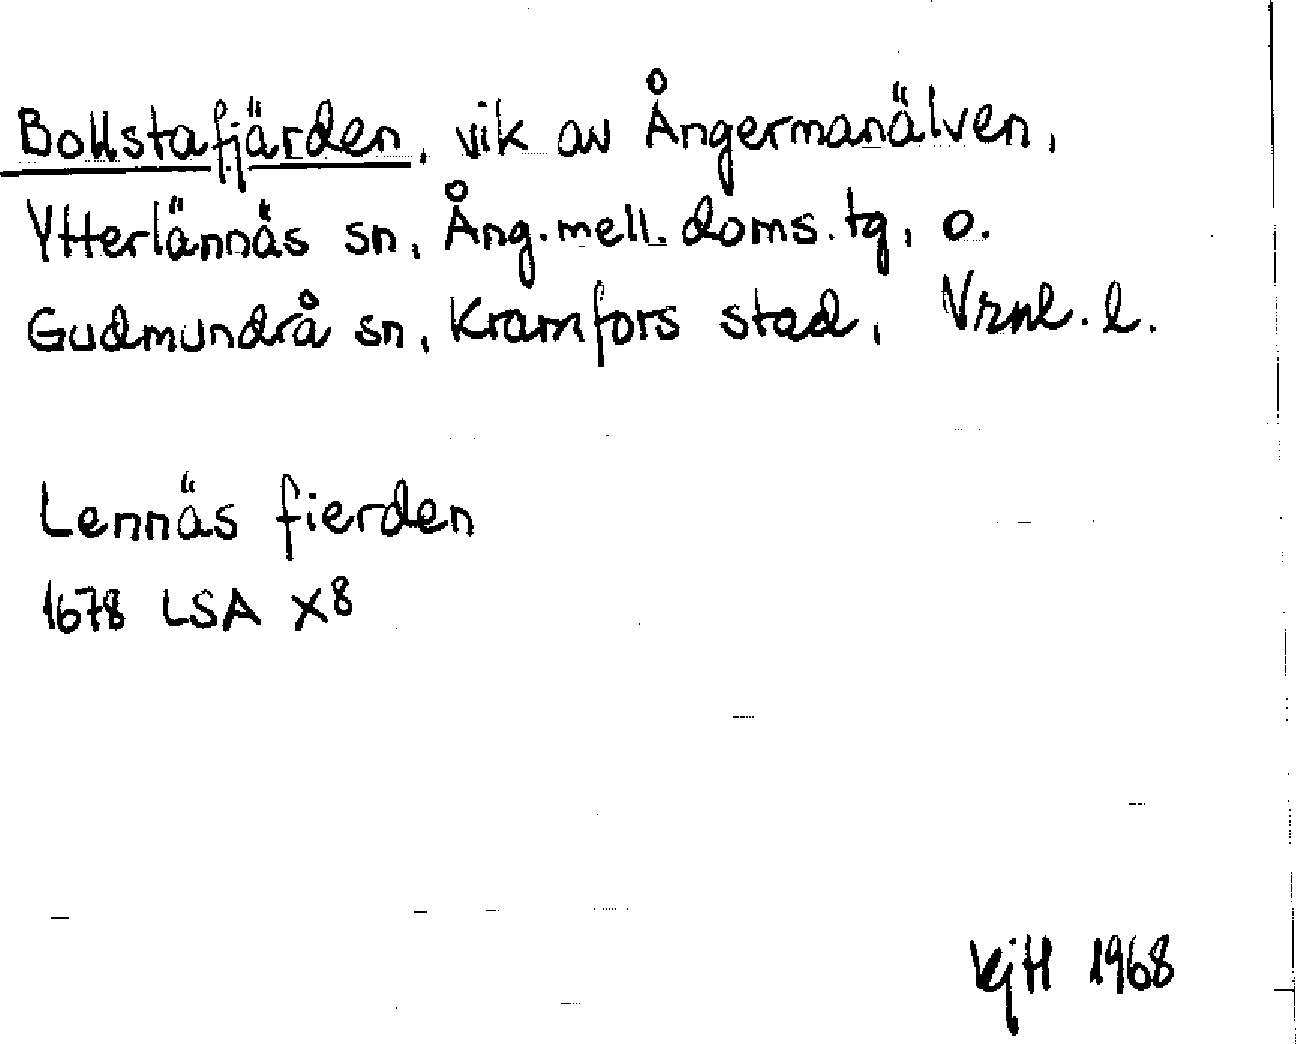 Bollstafjärden, vik av Ångermanälven,
Ytterlännäs sn, Ång. mell. doms. tg, o.
Gudmundrå sn, Kramfors stad, Vrnl. l.
Lennäs fierden
1678 LSA X8
KjH 1968